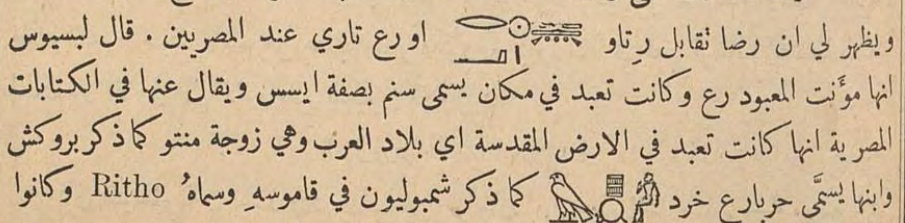 ويظهر لي ان رضا تقابل رِتاو او رع تاري عند المصريين . قال لبسيوس
انها مؤَنت المعبود رع وكانت تعبد في مكان يسمى سنم بصفة ايسس ويقال عنها في الكتابات
المصرية انها كانت تعبد في الارض المقدسة اي بلاد العرب وهي زوجة منتو كما ذكر بروكش
وابنها يسمَّى حربارع خرد كما ذكر شمبوليون في قاموسهِ وسماهُ Ritho وكانوا